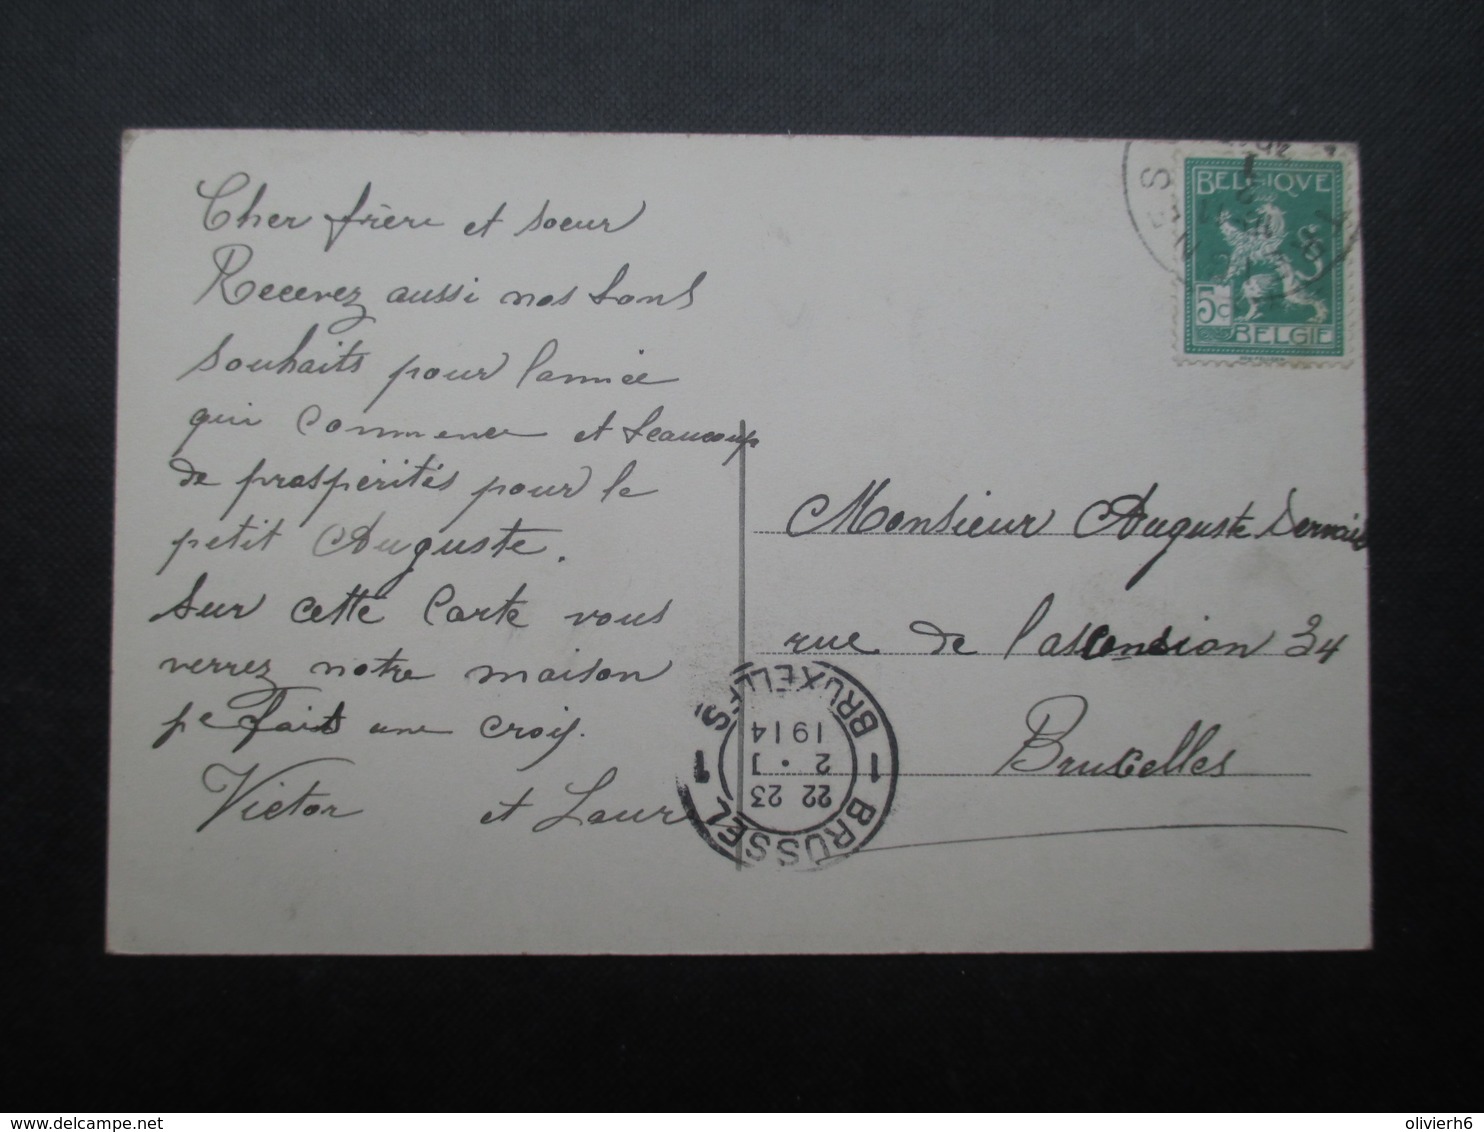 Cher frère et soeur
Recevez aussi nos bons
souhaits pour l'année
qui commence et beaucoup
de prospérités pour le
petit Auguste.
Sur cette carte vous
verrez notre maison
fait une croix.
Victor et Laure
BELGIQUE
5c
BELGIE
Monsieur Auguste Servais
rue de l'ascension 34
Bruxelles
1 BRUSSEL 1 BRUXELLES
22 23
2 • I
1914
delcampe.net
olivierh6